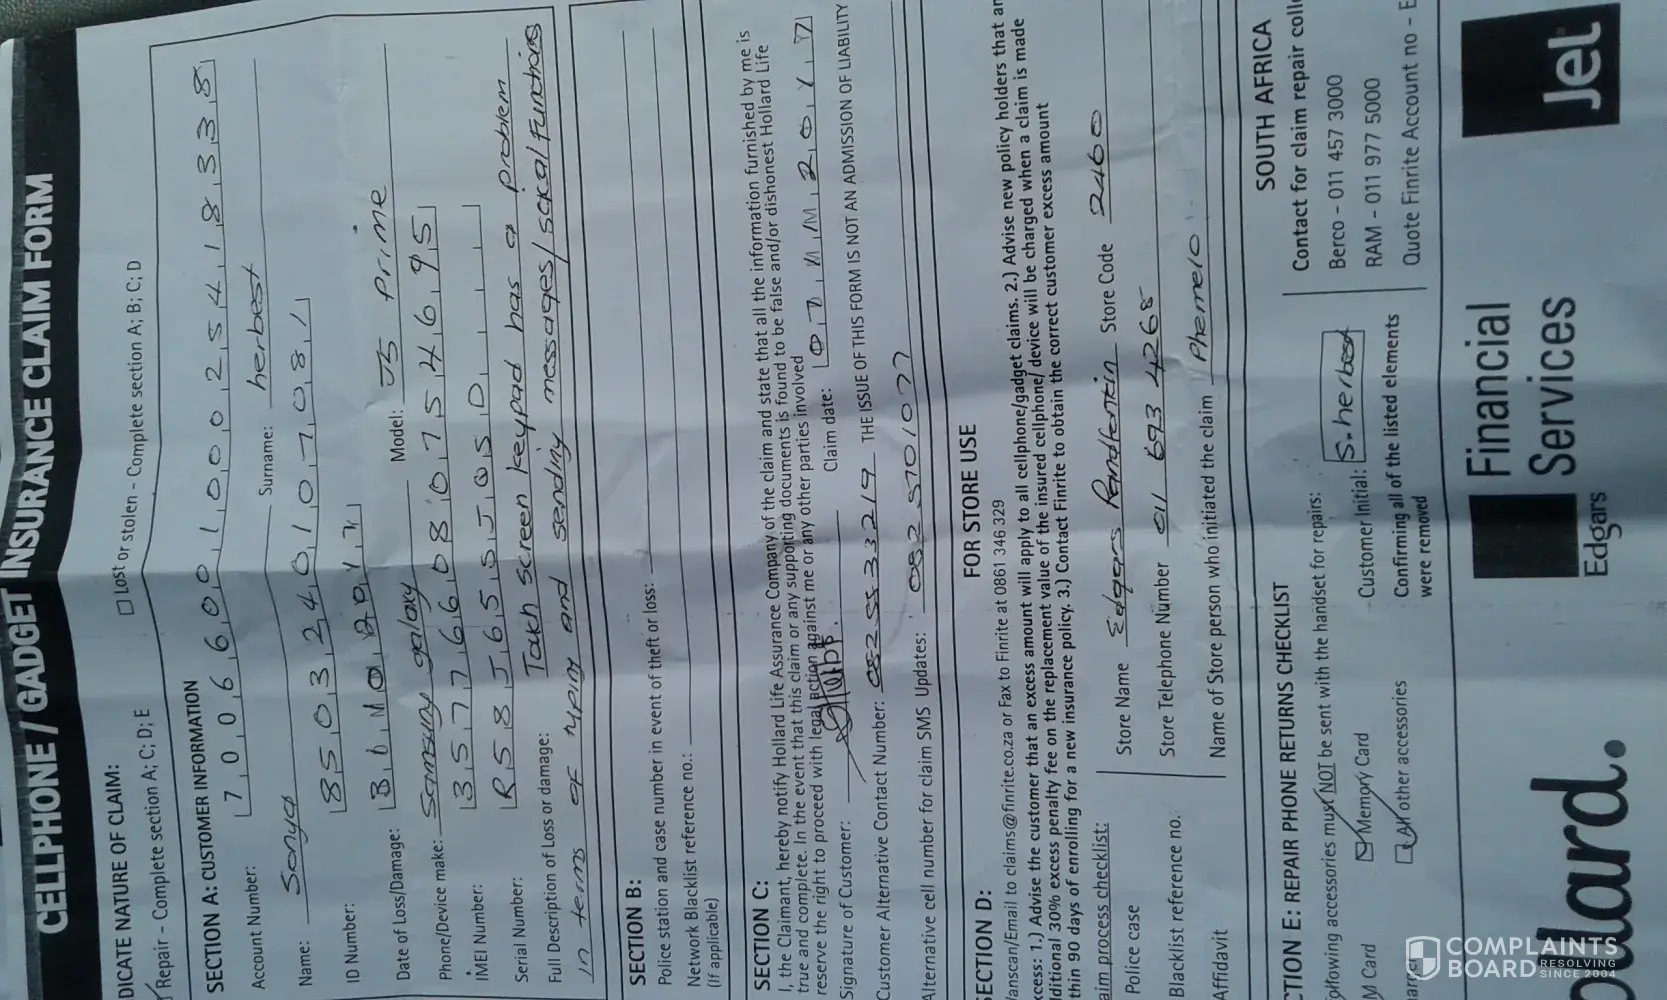 CELLPHONE / GADGET INSURANCE CLAIM FORM
DICATE NATURE OF CLAIM:
Repair - Complete section A; C; D; E
Lost or stolen - Complete section A; B; C; D
SECTION A: CUSTOMER INFORMATION
Account Number: 7 0 0 6 6 0 0 1 0 0 0 2 5 4 1 8 3 3 8
Name: Sonya Surname: herbest
ID Number: 8 5 0 3 2 4 0 1 0 7 0 8 1
Date of Loss/Damage:
Phone/Device make: Samsung galaxy Model: J5 prime
IMEI Number: 3 5 7 7 6 6 0 8 0 7 5 4 6 9 5
Serial Number: R 5 8 J 6 5 5 J Q S D
Full Description of Loss or damage: Tach screen keypad has a problem
in terms of typing and sending messages/ social functions
SECTION B:
Police station and case number in event of theft or loss:
Network Blacklist reference no.:
(If applicable)
SECTION C:
I, the Claimant, hereby notify Hollard Life Assurance Company of the claim and state that all the information furnished by me is
true and complete. In the event that this claim or any supporting documents is found to be false and/or dishonest Hollard Life
reserve the right to proceed with legal action against me or any other parties involved
Signature of Customer: Claim date: 0 7 M M 2 0 Y 7
Customer Alternative Contact Number: 0825533219 THE ISSUE OF THIS FORM IS NOT AN ADMISSION OF LIABILITY
Alternative cell number for claim SMS Updates: 0825701077
FOR STORE USE
SECTION D:
/scan/Email to claims@finrite.co.za or Fax to Finrite at 0861 346 329
xcess: 1.) Advise the customer that an excess amount will apply to all cellphone/gadget claims. 2.) Advise new policy holders that an
dditional 30% excess penalty fee on the replacement value of the insured cellphone/ device will be charged when a claim is made
thin 90 days of enrolling for a new insurance policy. 3.) Contact Finrite to obtain the correct customer excess amount
aim process checklist: Store Name Edgars Randfontein Store Code 2460
Police case Store Telephone Number 011 693 4268
Blacklist reference no.
Affidavit Name of Store person who initiated the claim Phemelo
CTION E: REPAIR PHONE RETURNS CHECKLIST
following accessories must NOT be sent with the handset for repairs:
M Card Memory Card Customer Initial: S.herbest
All other accessories Confirming all of the listed elements
were removed
SOUTH AFRICA
Contact for claim repair colle
Berco - 011 457 3000
RAM - 011 977 5000
Quote Finrite Account no - E
ollard.
Edgars
Financial
Services
Jet
COMPLAINTS
BOARD RESOLVING
SINCE 2004